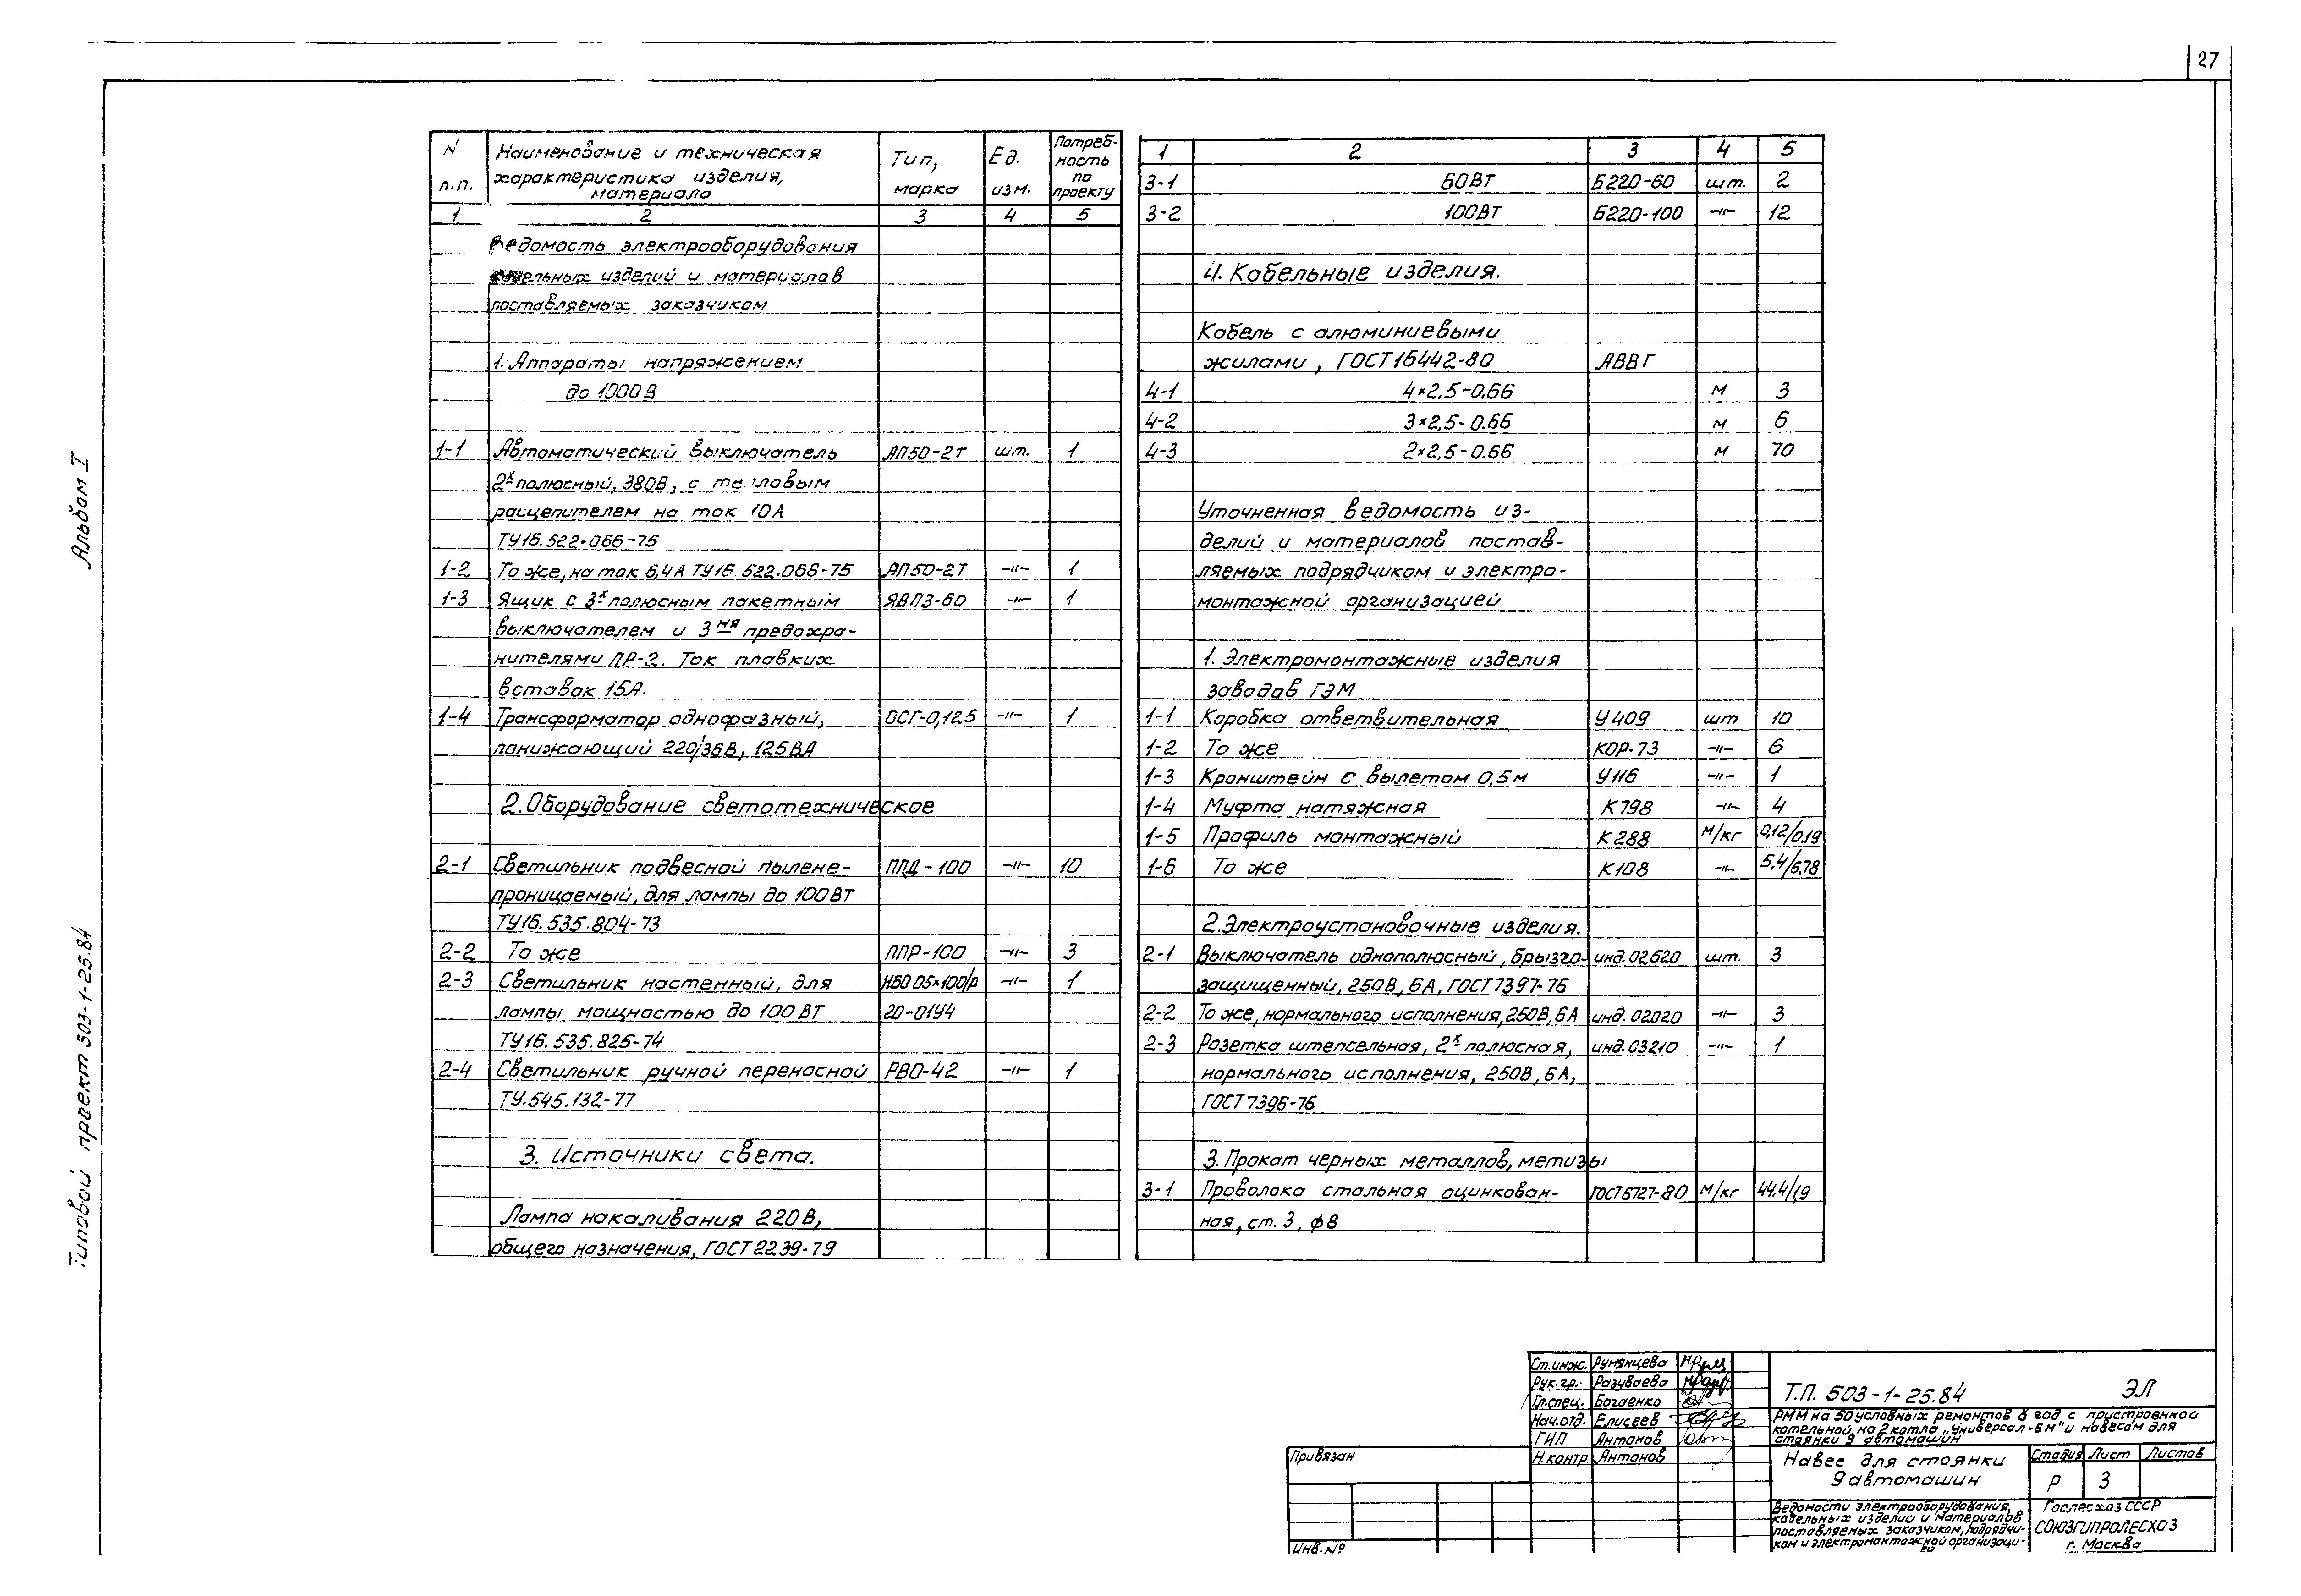 27
Альбом I
Типовой проект 503-1-25.84
N п.п. Наименование и техническая характеристика изделия, материала Тип, марка Ед. изм. Потреб-ность по проекту
1 2 3 4 5
Ведомость электрооборудования
кабельных изделий и материалов
поставляемых заказчиком
1. Аппараты напряжением
до 1000В
1-1 Автоматический выключатель АП50-2Т шт. 1
2х полюсный, 380В, с тепловым
расцепителем на ток 10А
ТУ16.522.066-75
1-2 То же, на ток 6,4А ТУ16.522.066-75 АП50-2Т -"- 1
1-3 Ящик с 3х полюсным пакетным ЯВПЗ-60 -"- 1
выключателем и 3мя предохра-
нителями ПР-2. Ток плавких
вставок 15А.
1-4 Трансформатор однофазный, ОСГ-0,125 -"- 1
понижающий 220/36В, 125ВА
2. Оборудование светотехническое
2-1 Светильник подвесной пылене- ППД-100 -"- 10
проницаемый, для лампы до 100Вт
ТУ16.535.804-73
2-2 То же ППР-100 -"- 3
2-3 Светильник настенный, для НБ005×100/р -"- 1
лампы мощностью до 100Вт 20-01У4
ТУ16.535.825-74
2-4 Светильник ручной переносной РВО-42 -"- 1
ТУ.545.132-77
3. Источники света.
Лампа накаливания 220В,
общего назначения, ГОСТ2239-79
1 2 3 4 5
3-1 60ВТ Б220-60 шт. 2
3-2 100ВТ Б220-100 -"- 12
4. Кабельные изделия.
Кабель с алюминиевыми
жилами, ГОСТ16442-80 АВВГ
4-1 4×2,5-0.66 м 3
4-2 3×2,5-0.66 м 6
4-3 2×2,5-0.66 м 70
Уточненная ведомость из-
делий и материалов постав-
ляемых подрядчиком и электро-
монтажной организацией
1. Электромонтажные изделия
заводов ГЭМ
1-1 Коробка ответвительная У409 шт 10
1-2 То же КОР-73 -"- 6
1-3 Кронштейн с вылетом 0,5м У116 -"- 1
1-4 Муфта натяжная К798 -"- 4
1-5 Профиль монтажный К288 м/кг 0,12/0.19
1-6 То же К108 -"- 5,4/6,78
2. Электроустановочные изделия.
2-1 Выключатель однополюсный, брызго- инд.02620 шт. 3
защищенный, 250В, 6А, ГОСТ7397-76
2-2 То же, нормального исполнения, 250В, 6А инд.02020 -"- 3
2-3 Розетка штепсельная, 2х полюсная, инд.03210 -"- 1
нормального исполнения, 250В, 6А,
ГОСТ7396-76
3. Прокат черных металлов, метизы
3-1 Проволока стальная оцинкован- ГОСТ6727-80 м/кг 44.4/1,9
ная, ст. 3, ф8
Ст.инж. Румянцева
Рук.гр. Разуваева
Гл.спец. Богаенко
Нач.отд. Елисеев
ГИП Антонов
Н.контр. Антонов
Привязан
Инв.№
Т.П. 503-1-25.84 ЭЛ
РММ на 50 условных ремонтов в год с пристроенной
котельной на 2 котла „Универсал-6М" и навесом для
стоянки 9 автомашин
Навес для стоянки
9 автомашин
Стадия Лист Листов
Р 3
Ведомости электрооборудования,
кабельных изделий и материалов
поставляемых заказчиком, подрядчи-
ком и электромонтажной организаци-
ей
Гослесхоз СССР
СОЮЗГИПРОЛЕСХОЗ
г. Москва